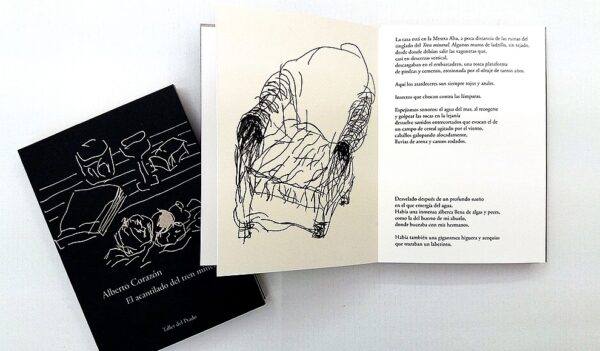 Alberto Corazón
El acantilado del tren mineral
Taller del Prado
La casa está en la Mesota Alta, a poca distancia de las ruinas del
tinglado del Tren mineral. Algunos muros de ladrillo, sin tejado,
desde donde debían salir las vagonetas que,
casi en descenso vertical,
descargaban en el embarcadero, una tosca plataforma
de piedras y cemento, erosionada por el oleaje de tantos años.
Aquí los atardeceres son siempre rojos y azules.
Insectos que chocan contra las lámparas.
Espejismos sonoros: el agua del mar, al recogerse
y golpear las rocas en la lejanía
devuelve sonidos entrecortados que evocan el de
un campo de cereal agitado por el viento,
caballos galopando alocadamente,
lluvias de arena y cantos rodados.
Desvelado después de un profundo sueño
en el que emergía del agua.
Había una inmensa alberca llena de algas y peces,
como la del huerto de mi abuelo,
donde buceaba con mis hermanos.
Había también una gigantesca higuera y acequias
que trazaban un laberinto.